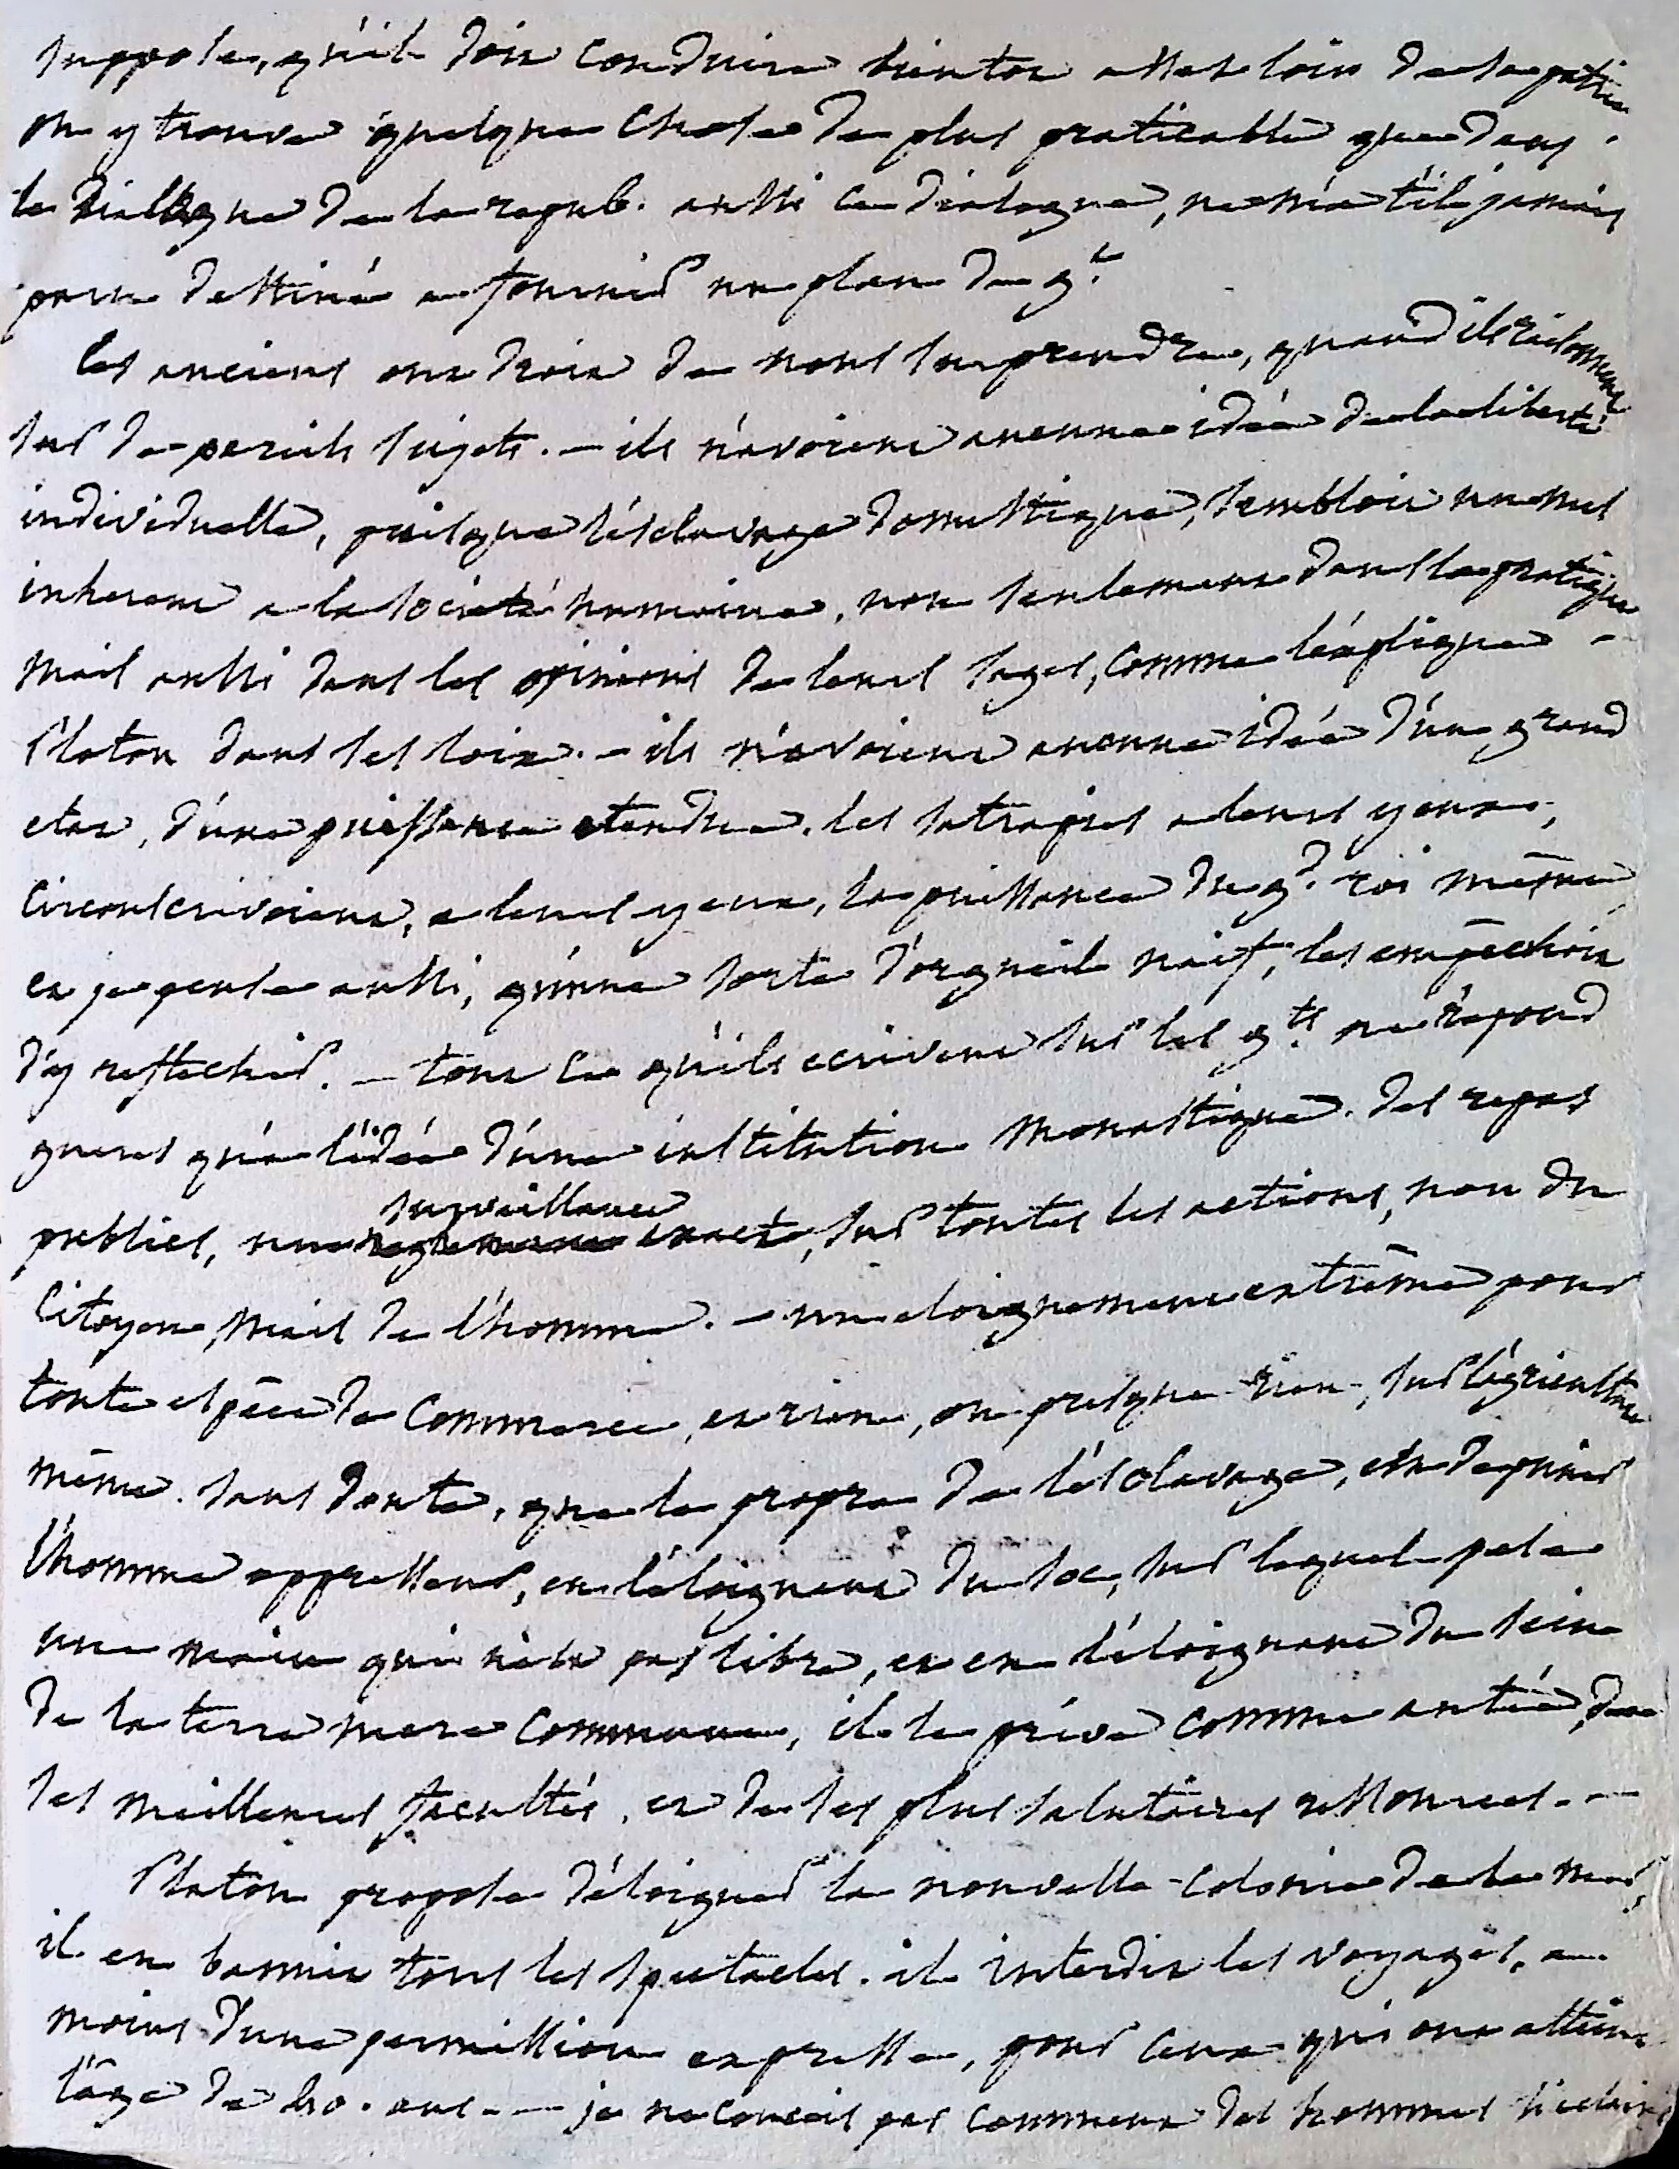 suppose, qu'il doit conduire bientot assez loin de sa patrie
on y trouve quelque chose de plus praticable que dans
le dialogue de la repub. aussi ce dialogue, ne m'a t'il jamais
paru destiné a fournir un plan de g.t
les anciens ont droit de nous surprendre, quand ils raisonnent
sur de pareils sujets. — ils n'avoient aucune idée de la liberté
individuelle, puisque l'esclavage domestique, sembloit un mal
inherent a la société humaine, non seulement dans la pratique
mais aussi dans les opinions de leurs sages, comme l'explique —
Platon dans ses loix. — ils n'avoient aucune idée d'un grand
etat, d'une puissance etendue. les satrapies a leurs yeux,
circonscrivoient, a leurs yeux, la puissance du g.d roi même
et je pense aussi, qu'une sorte d'orgueil naif, les empêchoit
d'y reflechir. — tout ce qu'ils ecrivent sur les g.ts ne répond
gueres qu'a l'idée d'une institution monastique. des repas
publics, une surveillance exacte, sur toutes les actions, non du
citoyen, mais de l'homme. — un eloignement extrême pour
toute espèce de commerce, et rien, ou presque rien, sur l'agriculture
même. sans doute, que le propre de l'esclavage, est de punir
l'homme oppresseur, en l'éloignant du soc, sur lequel pese
une main qui n'est pas libre, et en l'éloignant du sein
de la terre mere commune, il le prive comme antée, de
ses meilleures facultés, et de ses plus salutaires ressources. —
Platon propose d'éloigner la nouvelle colonie de la mer,
il en bannit tous les spectacles. il interdit les voyages, a
moins d'une permission expresse, pour ceux qui ont atteint
l'âge de 40. ans. — je ne conçois pas comment des hommes si eclairés